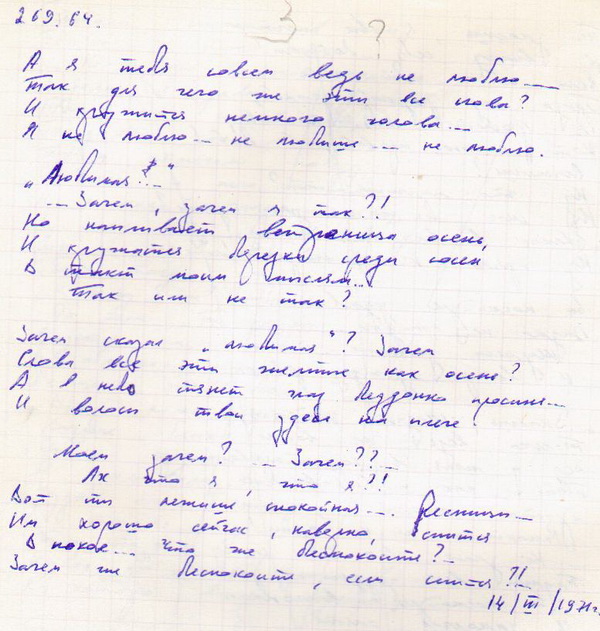 269.64.
З ?
А я тебя совсем ведь не люблю...
Так для чего же эти все слова?
И кружится немного голова...
Я не люблю... не любишь... не люблю.
„Любимая!..“
...Зачем, зачем я так?!
Но наплывает ветреница осень,
И кружатся березки среди сосен
В такт моим мыслям...
Так или не так?
Зачем сказал „любимая“? Зачем
Слова все эти желтые как осень?
А в небо тянет глаз бездонка просинь...
И волосы твои здесь на плече
Моем зачем? ... Зачем??...
Ах что я, что я?!
Вот ты лежишь спокойная... Ресницы...
Им хорошо сейчас, наверно, спится
В покое... Что же беспокоите?
Зачем же беспокоите, если спится?!..
14/III/1971г.